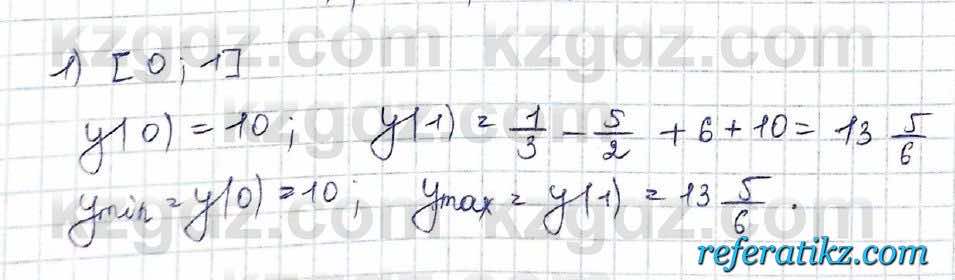 kzgdz.com kzgdz.com kzgdz.com
1) [0; 1]
y(0) = 10; y(1) = 1/3 - 5/2 + 6 + 10 = 13 5/6
ymin = y(0) = 10; ymax = y(1) = 13 5/6.
referatikz.com